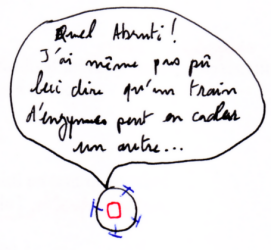 Quel Abruti !
J'ai même pas pû
lui dire qu'un train
d'enzymes peut en cacher
un autre...